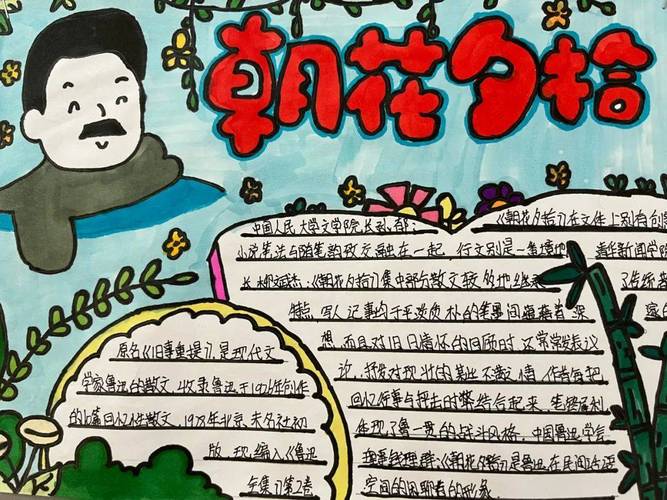 朝花夕拾
中国人民大学文学院长孙郁：
《朝花夕拾》在文体上别有创
小说笔法与随笔的散文融在一起，行文别是一番境地
清华新闻学院
长柳斌杰：《朝花夕拾》集中部分散文较多的地继承
了传统
特点，写人记事均于平淡质朴的笔墨间
来
想，而且对旧日情怀的回顾时，还常常发表议
论，抒发对现状的
作者每把
回忆行事与抨击时弊结合起来，笔锋犀利
体现了鲁一贯的战斗风格，中国鲁迅学会
《朝花夕拾》是鲁迅在民间话语
空间的闲聊
原名《旧事重提》是现代文
学家鲁迅的散文，收录鲁迅于1926年创作
的10篇回忆性散文，1928年北京未名社初
版，现编入《鲁迅
全集》第2卷